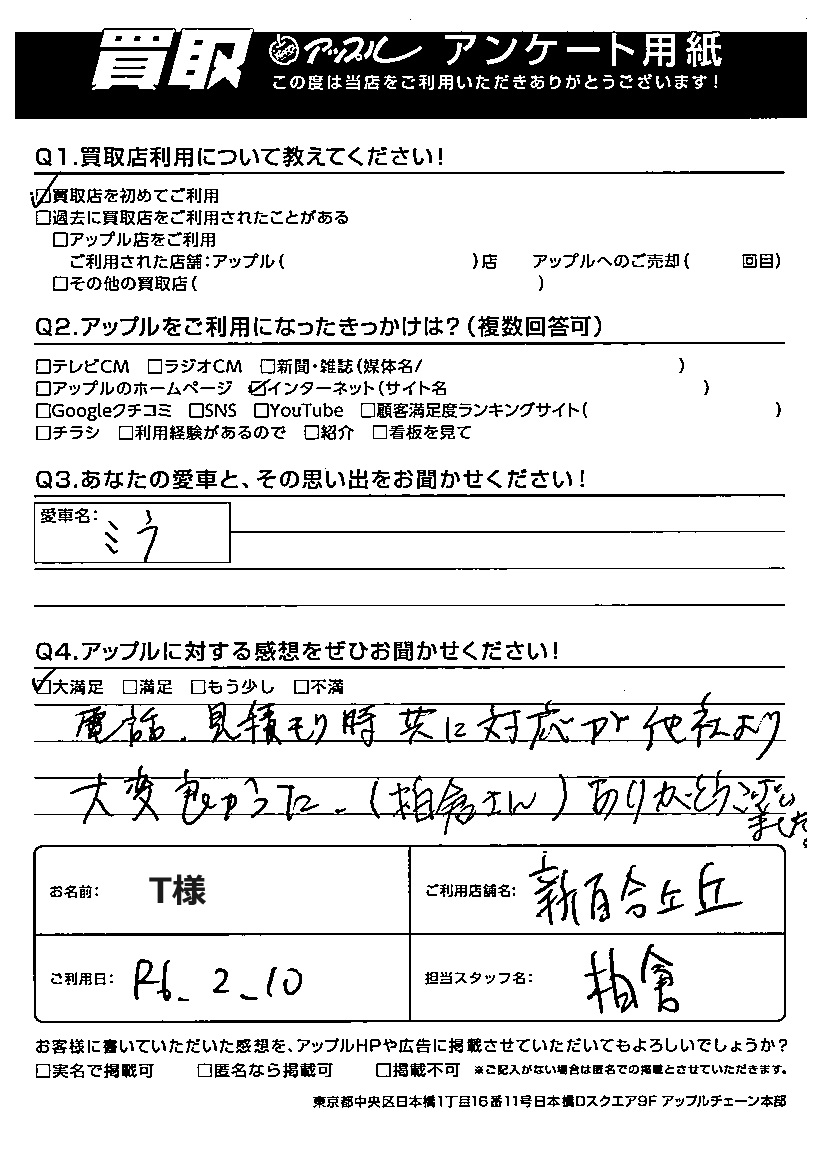 買取 アップル アンケート用紙
この度は当店をご利用いただきありがとうございます!
Q1.買取店利用について教えてください!
☑買取店を初めてご利用
□過去に買取店をご利用されたことがある
□アップル店をご利用
ご利用された店舗:アップル( )店 アップルへのご売却( 回目)
□その他の買取店( )
Q2.アップルをご利用になったきっかけは?(複数回答可)
□テレビCM □ラジオCM □新聞・雑誌(媒体名/ )
□アップルのホームページ ☑インターネット(サイト名 )
□Googleクチコミ □SNS □YouTube □顧客満足度ランキングサイト( )
□チラシ □利用経験があるので □紹介 □看板を見て
Q3.あなたの愛車と、その思い出をお聞かせください!
愛車名: ミラ
Q4.アップルに対する感想をぜひお聞かせください!
☑大満足 □満足 □もう少し □不満
電話、見積もり時共に対応が他社より
大変良かった。(柏倉さん)ありがとうござい
ました。
お名前: T様 ご利用店舗名: 新百合ヶ丘
ご利用日: R6_2_10 担当スタッフ名: 柏倉
お客様に書いていただいた感想を、アップルHPや広告に掲載させていただいてもよろしいでしょうか?
□実名で掲載可 □匿名なら掲載可 □掲載不可 ※ご記入がない場合は匿名での掲載とさせていただきます。
東京都中央区日本橋1丁目16番11号日本橋Dスクエア9F アップルチェーン本部